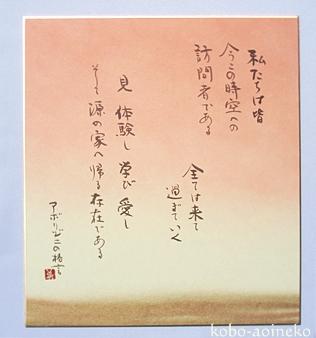 私たちは皆
今この時空への
訪問者である
全ては来て
過ぎていく
見 体験し 学び 愛し
そして 源の家へ帰る存在である
アボリジニの格言
kobo-aoineko